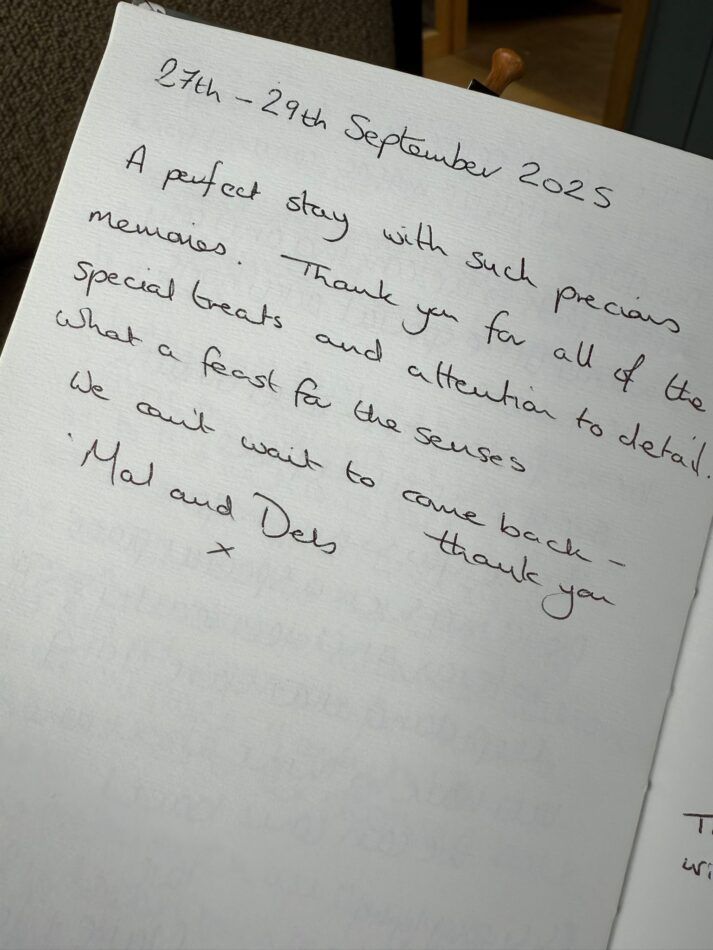 27th - 29th September 2025
A perfect stay with such precious
memories. Thank you for all of the
special treats and attention to detail.
What a feast for the senses
We can't wait to come back -
thank you
Mal and Debs
x